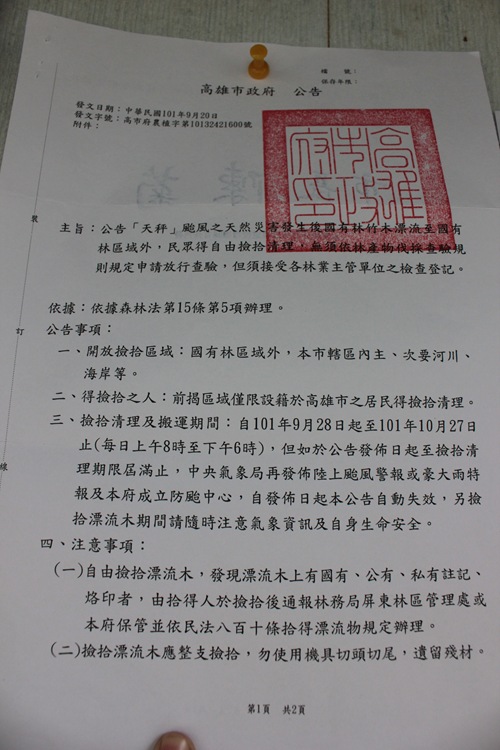 檔　　號：
保存年限：
高雄市政府　公告
發文日期：中華民國101年9月20日
發文字號：高市府農植字第10132421600號
附件：
高雄市政府印
裝
主旨：公告「天秤」颱風之天然災害發生後國有林竹木漂流至國有
林區域外，民眾得自由撿拾清理，無須依林產物伐採查驗規
則規定申請放行查驗，但須接受各林業主管單位之檢查登記。
依據：依據森林法第15條第5項辦理。
訂
公告事項：
一、開放撿拾區域：國有林區域外，本市轄區內主、次要河川、
海岸等。
二、得撿拾之人：前揭區域僅限設籍於高雄市之居民得撿拾清理。
三、撿拾清理及搬運期間：自101年9月28日起至101年10月27日
止(每日上午8時至下午6時)，但如於公告發佈日起至撿拾清
理期限屆滿止，中央氣象局再發佈陸上颱風警報或豪大雨特
線
報及本府成立防颱中心，自發佈日起本公告自動失效，另撿
拾漂流木期間請隨時注意氣象資訊及自身生命安全。
四、注意事項：
(一)自由撿拾漂流木，發現漂流木上有國有、公有、私有註記、
烙印者，由拾得人於撿拾後通報林務局屏東林區管理處或
本府保管並依民法八百十條拾得漂流物規定辦理。
(二)撿拾漂流木應整支撿拾，勿使用機具切頭切尾，遺留殘材。
第1頁　共2頁